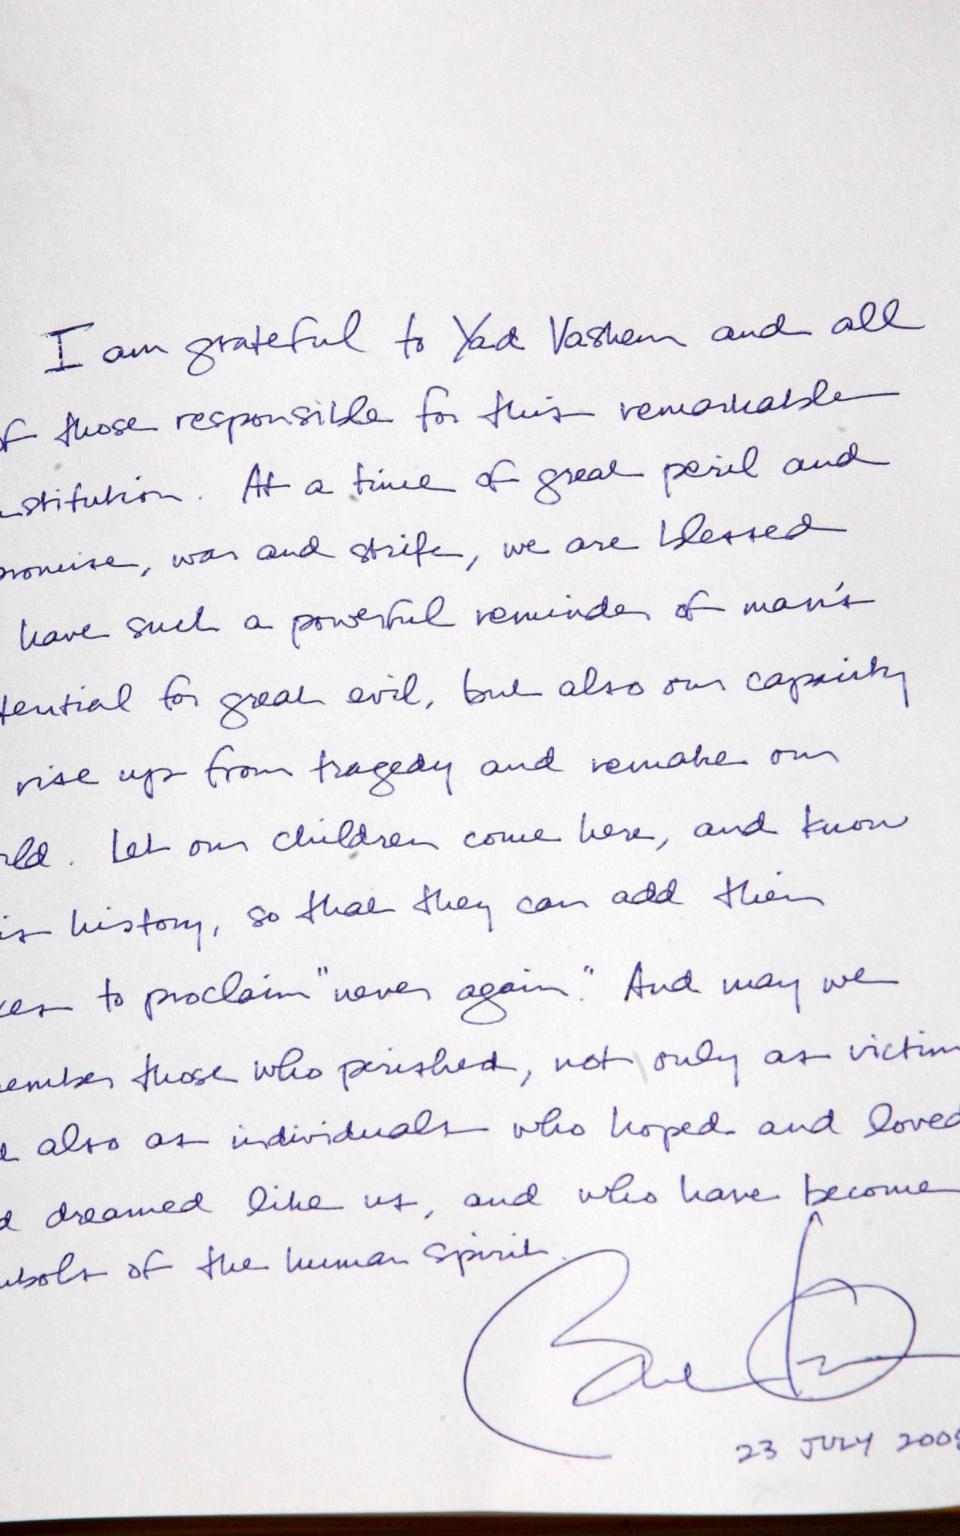 I am grateful to Yad Vashem and all
of those responsible for this remarkable
nstitution. At a time of great peril and
promise, war and strife, we are blessed
have such a powerful reminder of man's
tential for great evil, but also our capacity
rise up from tragedy and remake our
rld. Let our children come here, and know
is history, so that they can add their
ces to proclaim "never again." And may we
ember those who perished, not only as victim
t also as individuals who hoped and loved
d dreamed like us, and who have become
mbols of the human spirit.
23 JULY 2008